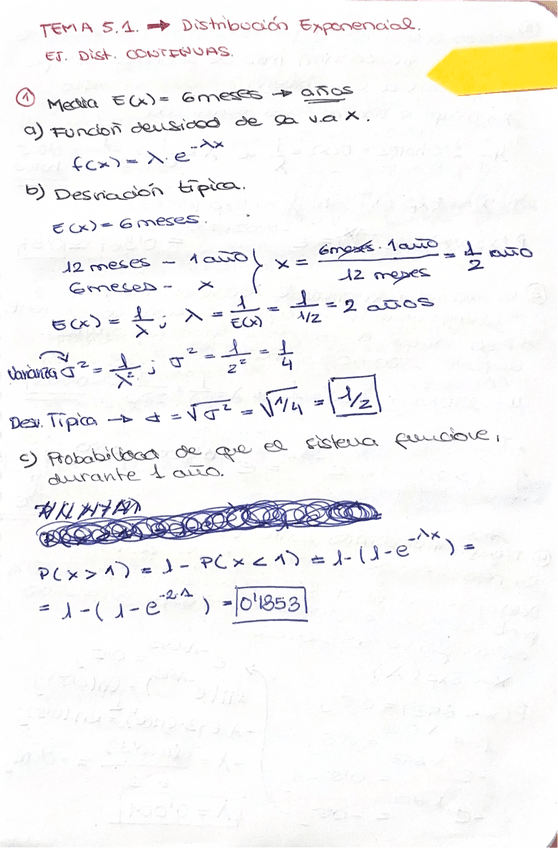 TEMA 5.1. → Distribución Exponencial.
EJ. Dist. CONTINUAS.
① Media E(x) = 6 meses → años
a) Función densidad de la v.a X.
f(x) = λ · e^-λx
b) Desviación típica.
E(x) = 6 meses.
12 meses - 1 año
6 meses - x
} x = 6 meses · 1 año / 12 meses = 1/2 año
E(x) = 1/λ ; λ = 1/E(x) = 1/1/2 = 2 años
Varianza σ² = 1/λ² ; σ² = 1/2² = 1/4
Desv. Típica → σ = √σ² = √1/4 = 1/2
c) Probabilidad de que el sistema funcione,
durante 1 año.
P(x > 1) = 1 - P(x < 1) = 1 - (1 - e^-λx) =
= 1 - (1 - e^-2·1) = 0'1353